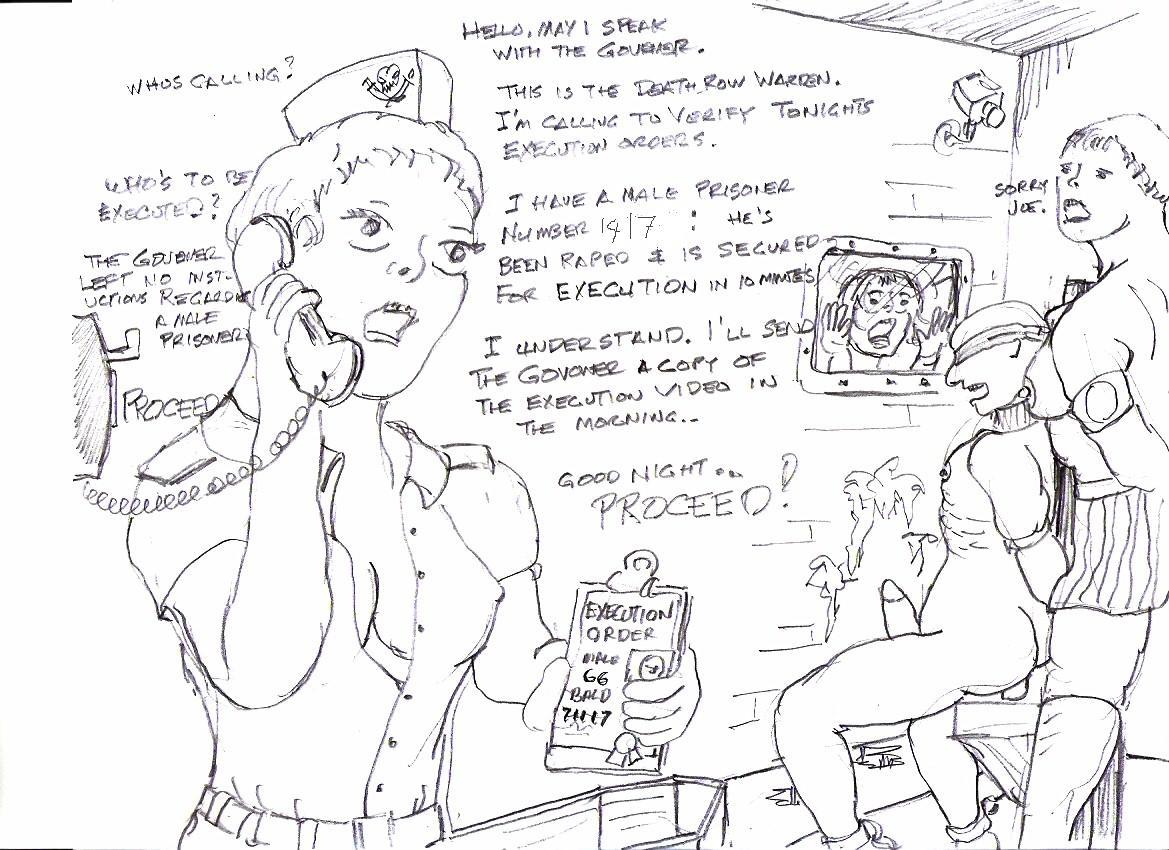 HELLO, MAY I SPEAK
WITH THE GOVENER.
WHOS CALLING?
THIS IS THE DEATH ROW WARDEN.
I'M CALLING TO VERIFY TONIGHTS
EXECUTION ORDERS.
WHO'S TO BE
EXECUTED?
I HAVE A MALE PRISONER
NUMBER 1917 : HE'S
BEEN RAPED & IS SECURED
FOR EXECUTION IN 10 MINUTES
THE GOVONER
LEFT NO INST-
UCTIONS REGARDING
A MALE
PRISONER.
PROCEED
I UNDERSTAND. I'LL SEND
THE GOVONER A COPY OF
THE EXECUTION VIDEO IN
THE MORNING..
GOOD NIGHT...
PROCEED!
SORRY
JOE.
EXECUTION
ORDER
MALE
66
BALD